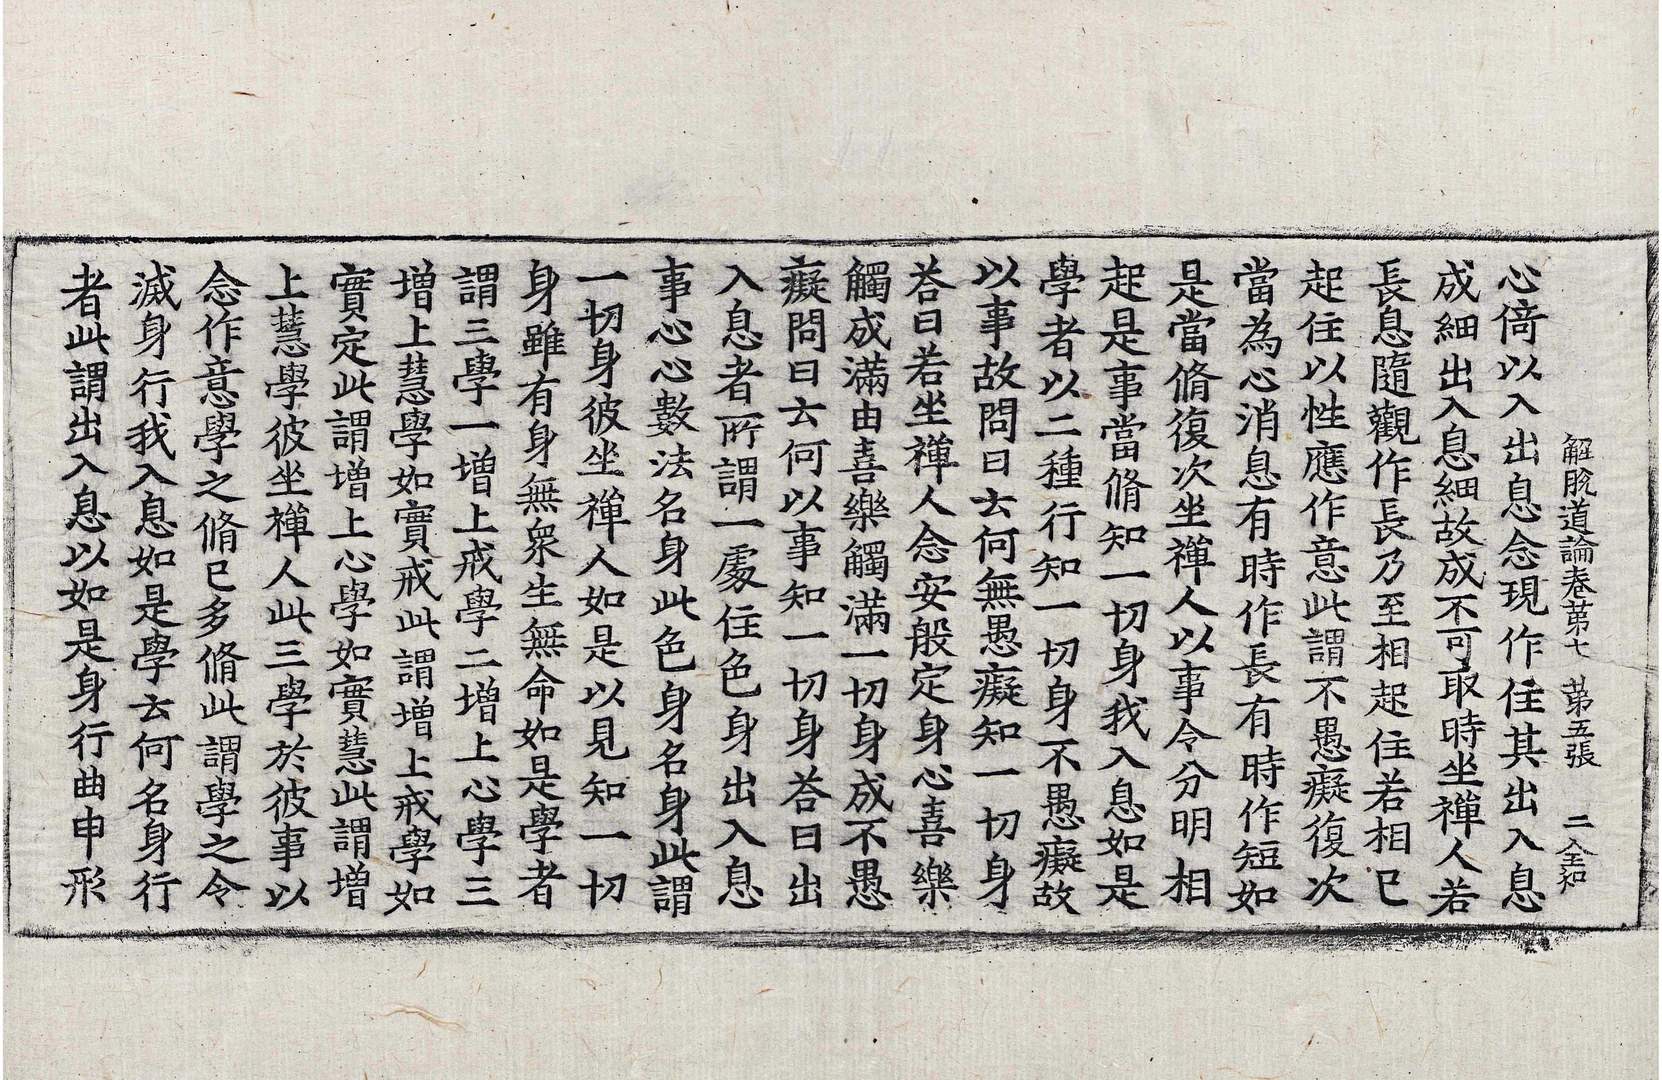 解脫道論卷第七　第五張　二全知
心倚以入出息念現作住其出入息
成細出入息細故成不可取時坐禪人若
長息隨觀作長乃至相起住若相已
起住以性應作意此謂不愚癡復次
當為心消息有時作長有時作短如
是當脩復次坐禪人以事令分明相
起是事當脩知一切身我入息如是
學者以二種行知一切身不愚癡故
以事故問曰云何無愚癡知一切身
荅曰若坐禪人念安般定身心喜樂
觸成滿由喜樂觸滿一切身成不愚
癡問曰云何以事知一切身荅曰出
入息者所謂一處住色身出入息
事心心數法名身此色身名身此謂
一切身彼坐禪人如是以見知一切
身雖有身無衆生無命如是學者
謂三學一增上戒學二增上心學三
增上慧學如實戒此謂增上戒學如
實定此謂增上心學如實慧此謂增
上慧學彼坐禪人此三學於彼事以
念作意學之脩已多脩此謂學之令
滅身行我入息如是學云何名身行
者此謂出入息以如是身行曲申形